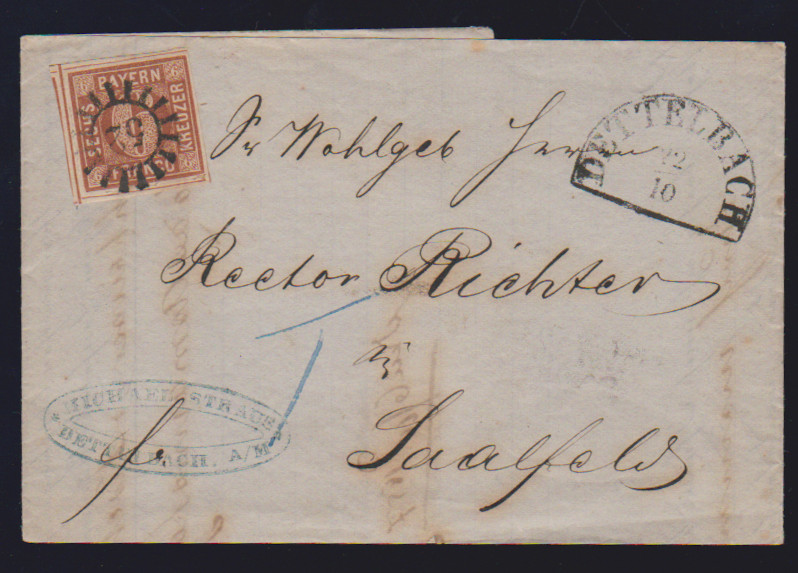 BAYERN
SECHS
KREUZER
6
FRANCO
DETTELBACH
22
10
Sr Wohlgeb Herrn
Rector Richter
zu
Saalfeld
fr.
MICHAEL STRAUS
DETTELBACH. A/M